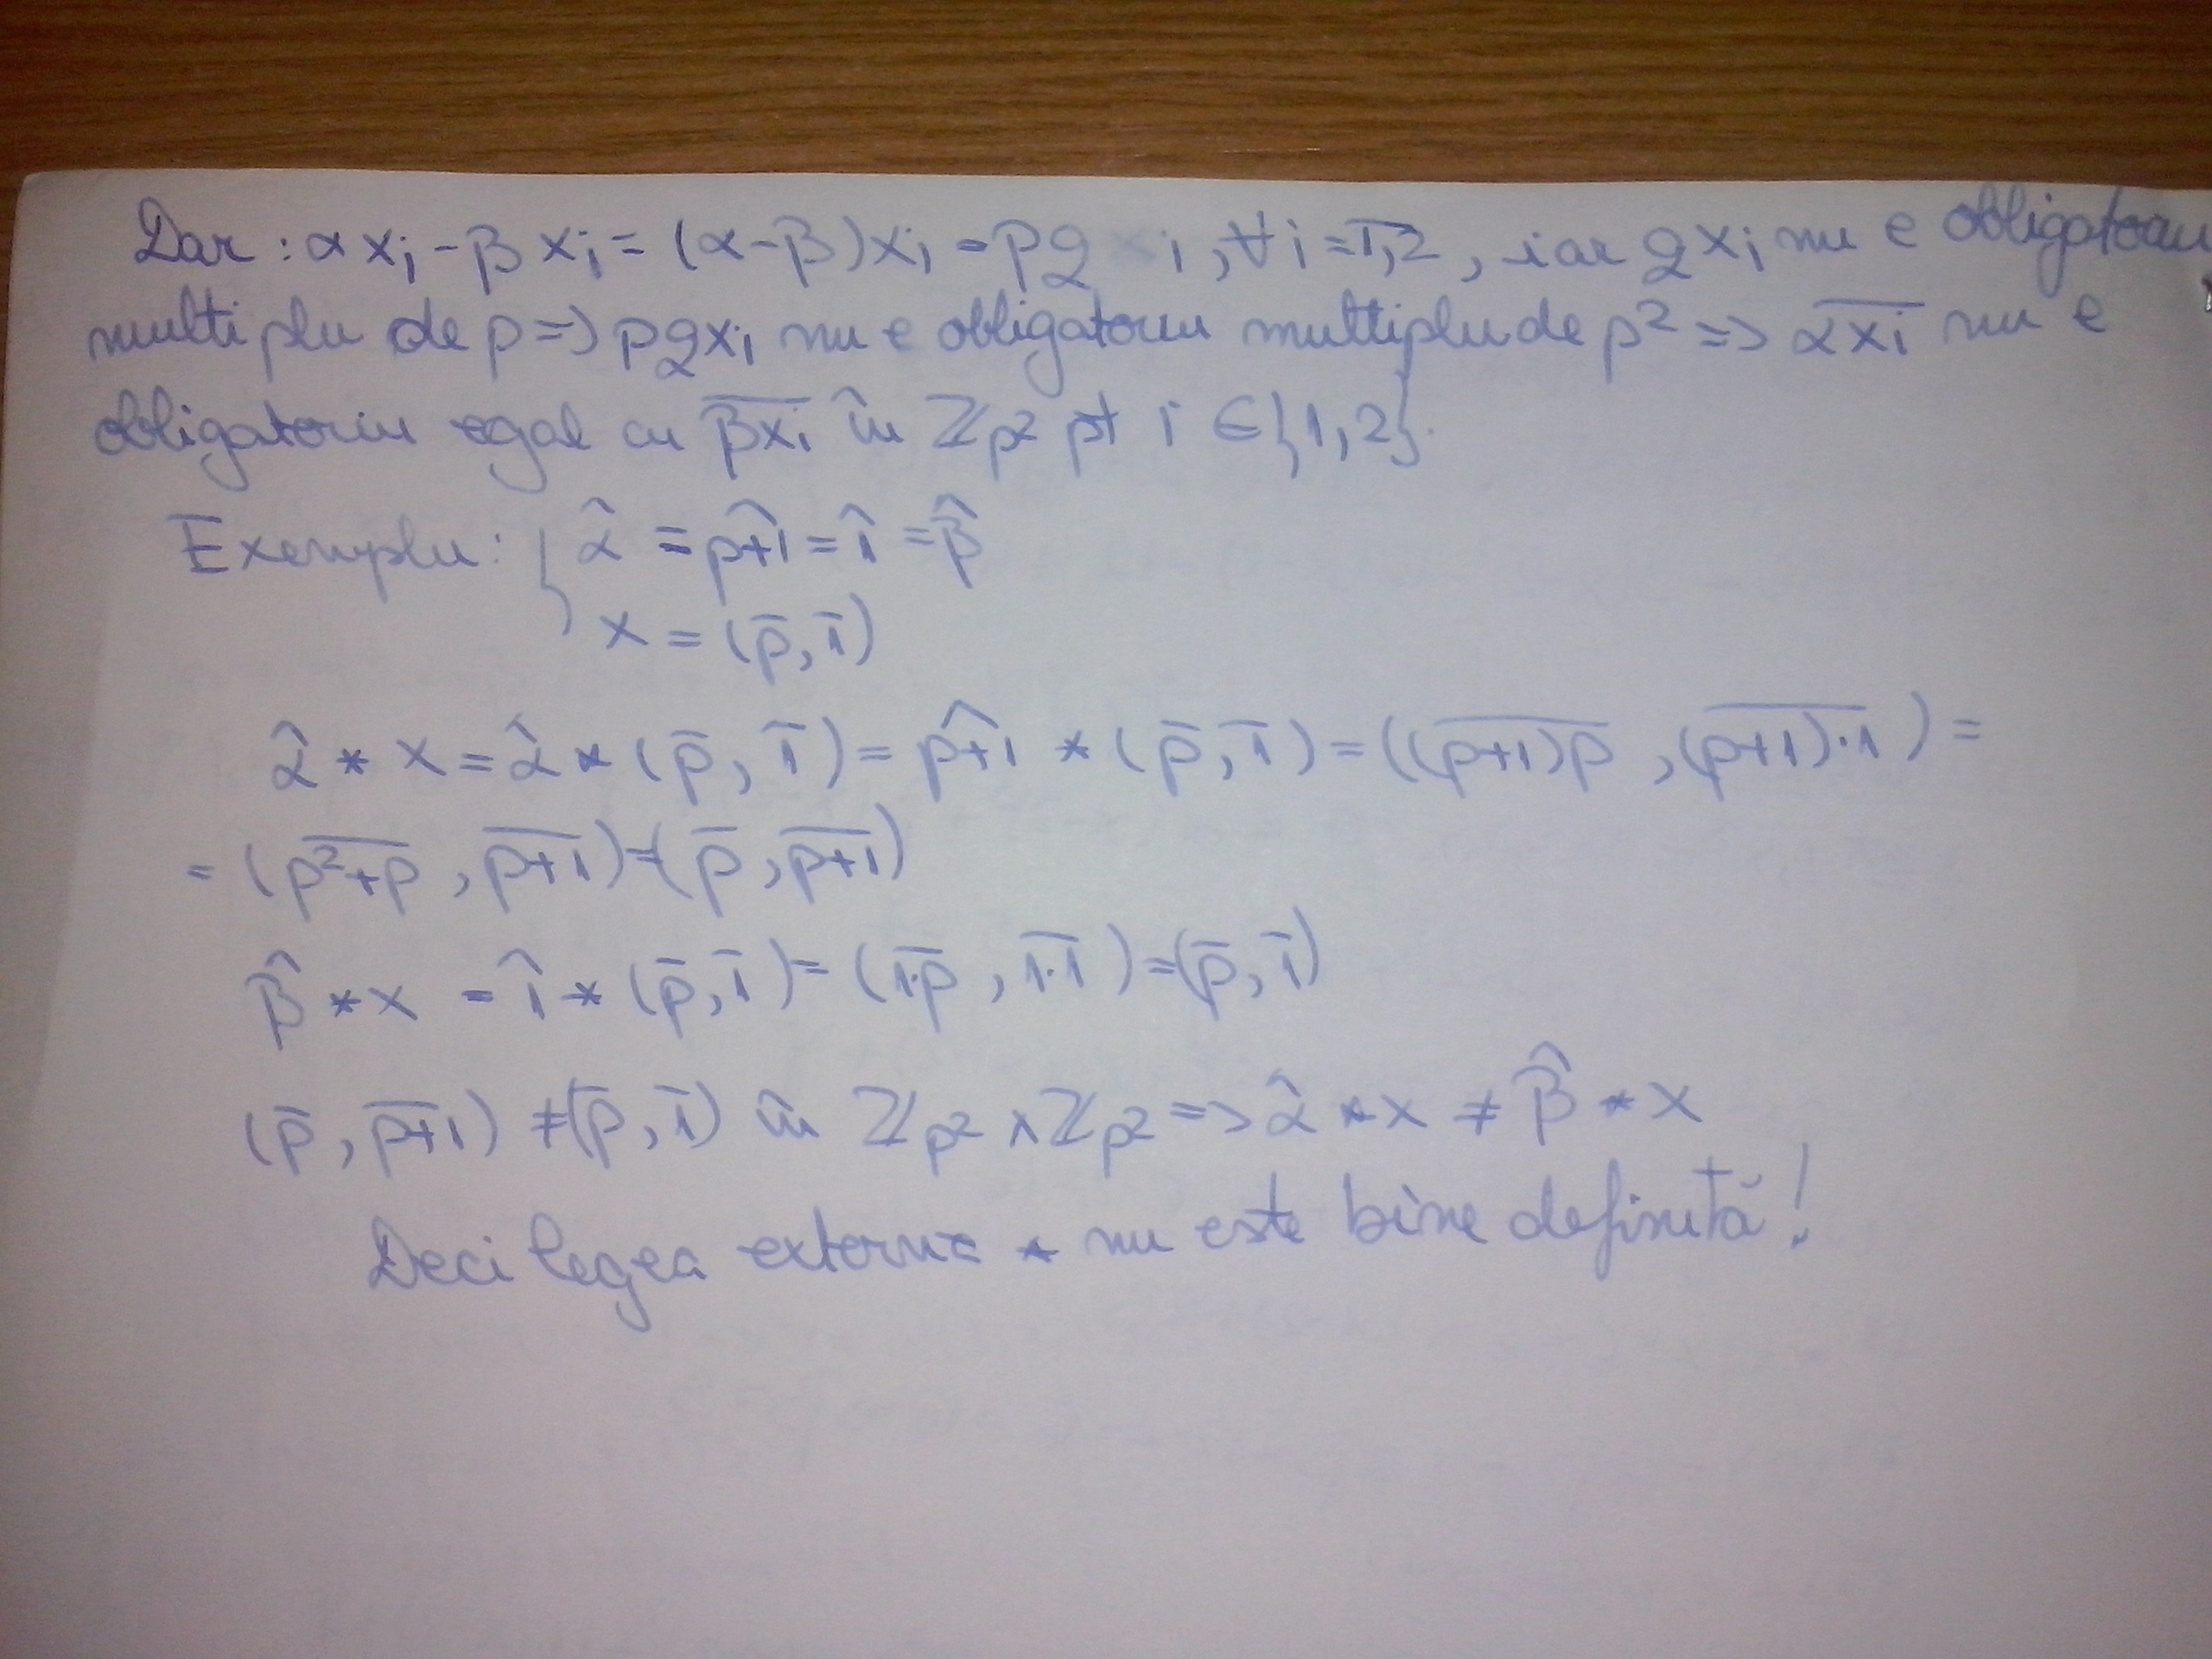 Dar: αxᵢ - βxᵢ = (α-β)xᵢ = pqxᵢ, ∀i=1,2, iar qxᵢ nu e obligatoriu
multiplu de p => pqxᵢ nu e obligatoriu multiplu de p² => \overline{αxᵢ} nu e
obligatoriu egal cu \overline{βxᵢ} în ℤ_{p²} pt i ∈ {1,2}.
Exemplu: { \hat{α} = \widehat{p+1} = \hat{1} = \hat{β}
x = (\bar{p}, \bar{1})
\hat{α} * x = \hat{α} * (\bar{p}, \bar{1}) = \widehat{p+1} * (\bar{p}, \bar{1}) = (\overline{(p+1)p}, \overline{(p+1)·1}) =
= (\overline{p²+p}, \overline{p+1}) = (\bar{p}, \overline{p+1})
\hat{β} * x = \hat{1} * (\bar{p}, \bar{1}) = (\overline{1·p}, \overline{1·1}) = (\bar{p}, \bar{1})
(\bar{p}, \overline{p+1}) ≠ (\bar{p}, \bar{1}) în ℤ_{p²} × ℤ_{p²} => \hat{α} * x ≠ \hat{β} * x
Deci legea externă * nu este bine definită!